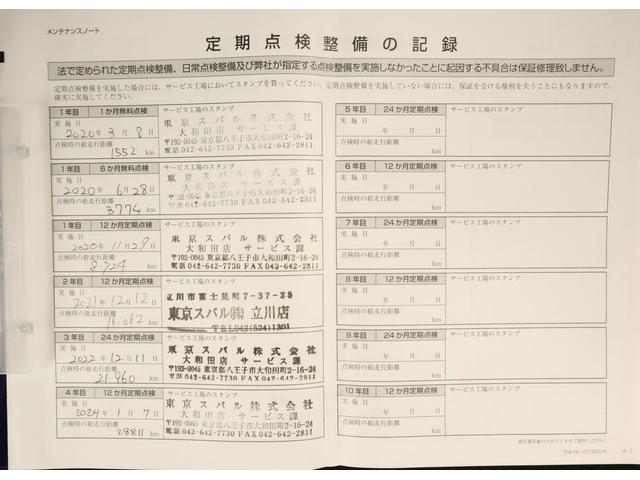 メンテナンスノート
定期点検整備の記録
法で定められた定期点検整備、日常点検整備及び弊社が指定する点検整備を実施しなかったことに起因する不具合は保証修理致しません。
定期点検整備を実施した場合には、サービス工場においてスタンプを貰ってください。定期点検整備を実施していない場合には、保証を受ける権利を失うことにもなりますので、
確実に実施してください。
1年目 1か月無料点検 サービス工場のスタンプ
実施日
2020年3月8日
点検時の総走行距離
1552 km
東京スバル株式会社
大和田店 サービス課
〒192-0045 東京都八王子市大和田町2-16-24
電話 042-642-7730 FAX 042-642-2811
1年目 6か月無料点検 サービス工場のスタンプ
実施日
2020年6月28日
点検時の総走行距離
3774 km
東京スバル株式会社
大和田店 サービス課
〒192-0045 東京都八王子市大和田町2-16-24
電話 042-642-7730 FAX 042-642-2811
1年目 12か月定期点検 サービス工場のスタンプ
実施日
2020年11月29日
点検時の総走行距離
km
東京スバル株式会社
大和田店 サービス課
〒192-0045 東京都八王子市大和田町2-16-24
電話 042-642-7730 FAX 042-642-2811
2年目 12か月定期点検 サービス工場のスタンプ
実施日
2021年12月12日
点検時の総走行距離
km
立川市富士見町7-37-25
東京スバル㈱ 立川店
TEL 042(524)1301
3年目 24か月定期点検 サービス工場のスタンプ
実施日
2022年12月11日
点検時の総走行距離
21960 km
東京スバル株式会社
大和田店 サービス課
〒192-0045 東京都八王子市大和田町2-16-24
電話 042-642-7730 FAX 042-642-2811
4年目 12か月定期点検 サービス工場のスタンプ
実施日
2024年1月7日
点検時の総走行距離
28811 km
東京スバル株式会社
大和田店 サービス課
〒192-0045 東京都八王子市大和田町2-16-24
電話 042-642-7730 FAX 042-642-2811
5年目 24か月定期点検 サービス工場のスタンプ
実施日
年 月 日
点検時の総走行距離
km
6年目 12か月定期点検 サービス工場のスタンプ
実施日
年 月 日
点検時の総走行距離
km
7年目 24か月定期点検 サービス工場のスタンプ
実施日
年 月 日
点検時の総走行距離
km
8年目 12か月定期点検 サービス工場のスタンプ
実施日
年 月 日
点検時の総走行距離
km
9年目 24か月定期点検 サービス工場のスタンプ
実施日
年 月 日
点検時の総走行距離
km
10年目 12か月定期点検 サービス工場のスタンプ
実施日
年 月 日
点検時の総走行距離
km